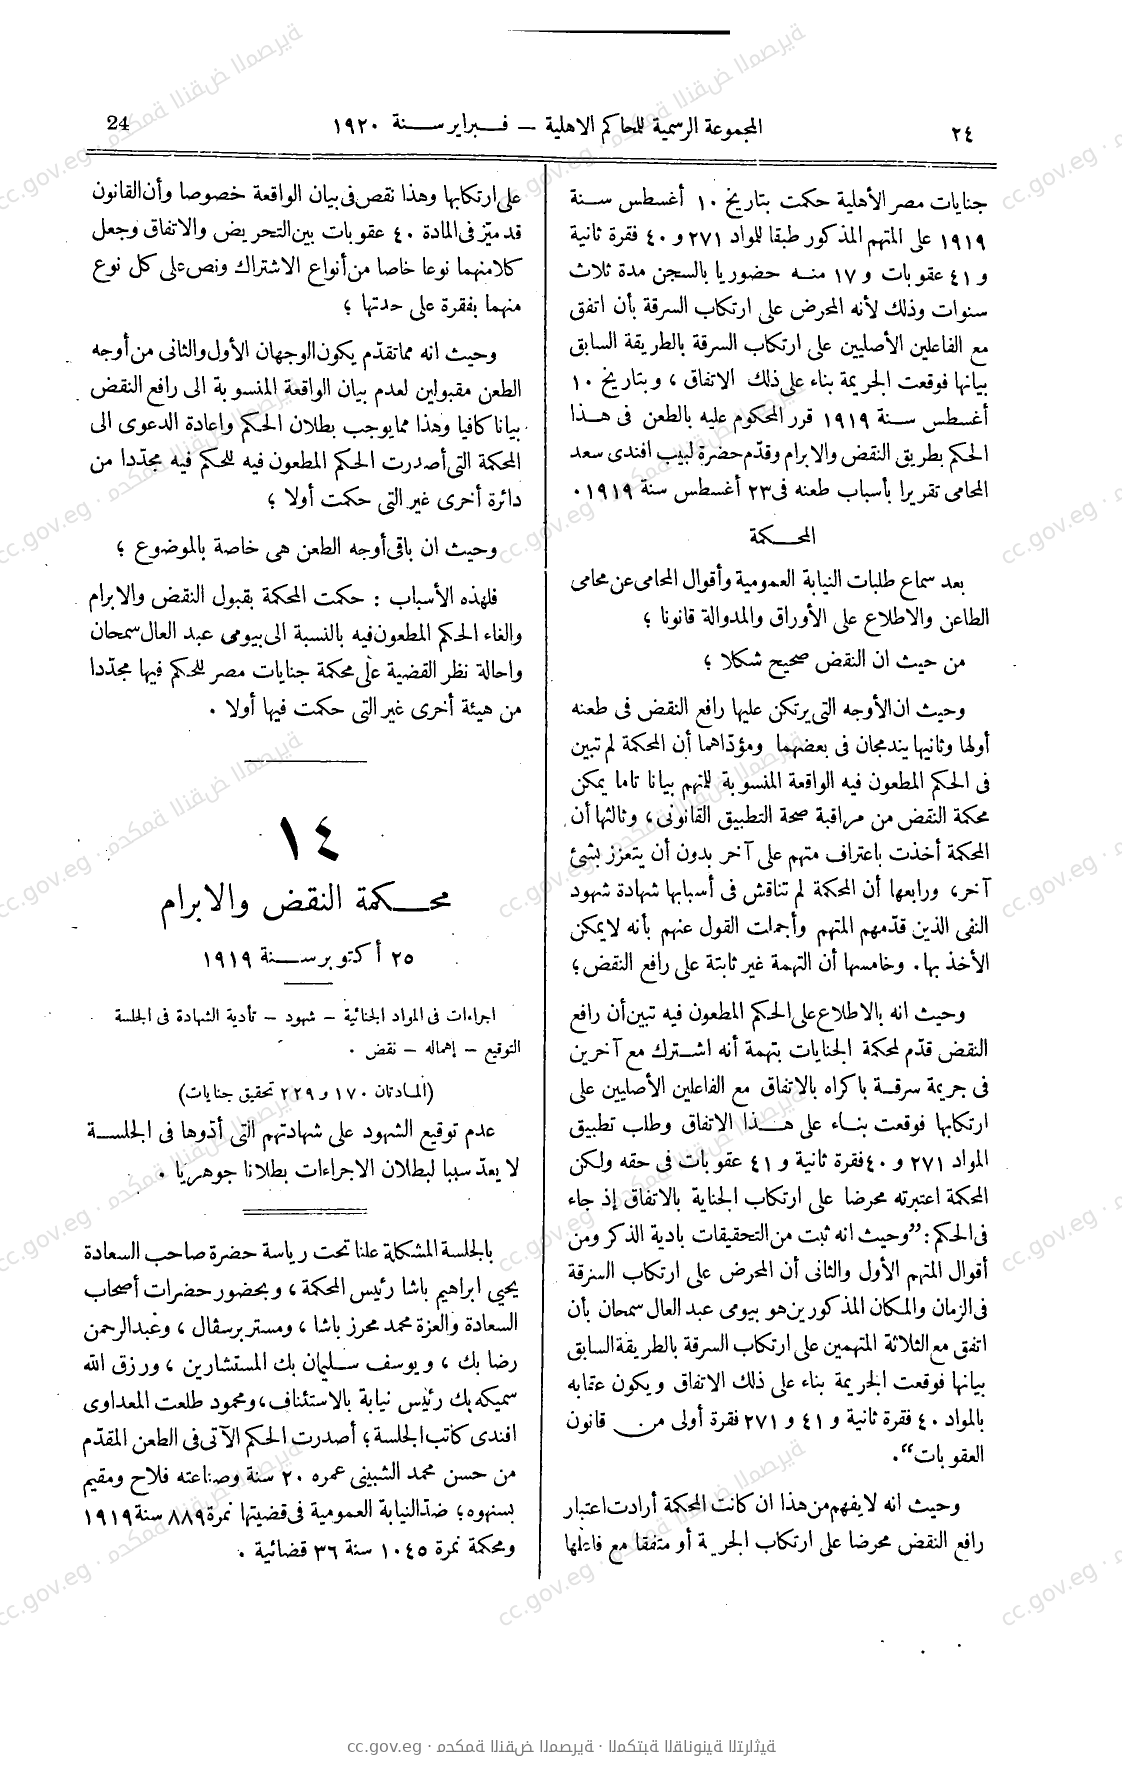 ٢٤
المجموعة الرسمية للمحاكم الاهلية — فبراير سنة ١٩٢٠
24
جنايات مصر الأهلية حكمت بتاريخ ١٠ أغسطس سنة
١٩١٩ على المتهم المذكور طبقا للمواد ٢٧١ و ٤٠ فقرة ثانية
و ٤١ عقوبات و ١٧ منه حضوريا بالسجن مدة ثلاث
سنوات وذلك لأنه المحرض على ارتكاب السرقة بأن اتفق
مع الفاعلين الأصليين على ارتكاب السرقة بالطريقة السابق
بيانها فوقعت الجريمة بناء على ذلك الاتفاق ، وبتاريخ ١٠
أغسطس سنة ١٩١٩ قرر المحكوم عليه بالطعن فى هذا
الحكم بطريق النقض والابرام وقدّم حضرة لبيب افندى سعد
المحامى تقريرا بأسباب طعنه فى ٢٣ أغسطس سنة ١٩١٩ ٠
المحكمة
بعد سماع طلبات النيابة العمومية وأقوال المحامى عن محامى
الطاعن والاطلاع على الأوراق والمداولة قانونا ؛
من حيث ان النقض صحيح شكلا ؛
وحيث ان الأوجه التى يرتكن عليها رافع النقض فى طعنه
أولها وثانيها يندمجان فى بعضهما ومؤدّاهما أن المحكمة لم تبين
فى الحكم المطعون فيه الواقعة المنسوبة للمتهم بيانا تاما يمكن
محكمة النقض من مراقبة صحة التطبيق القانونى ، وثالثها أن
المحكمة أخذت باعتراف متهم على آخر بدون أن يتعزز بشئ
آخر، ورابعها أن المحكمة لم تناقش فى أسبابها شهادة شهود
النفى الذين قدّمهم المتهم وأجملت القول عنهم بأنه لا يمكن
الأخذ بها . وخامسها أن التهمة غير ثابتة على رافع النقض ؛
وحيث انه بالاطلاع على الحكم المطعون فيه تبين أن رافع
النقض قدّم لمحكمة الجنايات بتهمة أنه اشترك مع آخرين
فى جريمة سرقة باكراه بالاتفاق مع الفاعلين الأصليين على
ارتكابها فوقعت بناء على هذا الاتفاق وطلب تطبيق
المواد ٢٧١ و ٤٠ فقرة ثانية و ٤١ عقوبات فى حقه ولكن
المحكمة اعتبرته محرضا على ارتكاب الجناية بالاتفاق إذ جاء
فى الحكم : ”وحيث انه ثبت من التحقيقات بادية الذكر ومن
أقوال المتهم الأول والثانى أن المحرض على ارتكاب السرقة
فى الزمان والمكان المذكورين هو بيومى عبد العال سمحان بأن
اتفق مع الثلاثة المتهمين على ارتكاب السرقة بالطريقة السابق
بيانها فوقعت الجريمة بناء على ذلك الاتفاق ويكون عقابه
بالمواد ٤٠ فقرة ثانية و ٤١ و ٢٧١ فقرة أولى من قانون
العقوبات“ .
وحيث انه لا يفهم من هذا ان كانت المحكمة أرادت اعتبار
رافع النقض محرضا على ارتكاب الجريمة أو متفقا مع فاعلها
على ارتكابها وهذا نقص فى بيان الواقعة خصوصا وأن القانون
قد ميّز فى المادة ٤٠ عقوبات بين التحريض والاتفاق وجعل
كلا منهما نوعا خاصا من أنواع الاشتراك ونص على كل نوع
منهما بفقرة على حدتها ؛
وحيث انه مما تقدّم يكون الوجهان الأول والثانى من أوجه
الطعن مقبولين لعدم بيان الواقعة المنسوبة الى رافع النقض
بيانا كافيا وهذا مما يوجب بطلان الحكم واعادة الدعوى الى
المحكمة التى أصدرت الحكم المطعون فيه للحكم فيه مجدّدا من
دائرة أخرى غير التى حكمت أولا ؛
وحيث ان باقى أوجه الطعن هى خاصة بالموضوع ؛
فلهذه الأسباب : حكمت المحكمة بقبول النقض والابرام
والغاء الحكم المطعون فيه بالنسبة الى بيومى عبد العال سمحان
واحالة نظر القضية على محكمة جنايات مصر للحكم فيها مجدّدا
من هيئة أخرى غير التى حكمت فيها أولا .
١٤
محكمة النقض والابرام
٢٥ أكتوبر سنة ١٩١٩
اجراءات فى المواد الجنائية — شهود — تأدية الشهادة فى الجلسة
التوقيع — إهماله — نقض .
(المادتان ١٧٠ و ٢٢٩ تحقيق جنايات)
عدم توقيع الشهود على شهادتهم التى أدّوها فى الجلسة
لا يعدّ سببا لبطلان الاجراءات بطلانا جوهريا .
بالجلسة المشكلة علنا تحت رياسة حضرة صاحب السعادة
يحيى ابراهيم باشا رئيس المحكمة ، وبحضور حضرات أصحاب
السعادة والعزة محمد محرز باشا ، ومستر برسفال ، وعبد الرحمن
رضا بك ، ويوسف سليمان بك المستشارين ، ورزق الله
سميكه بك رئيس نيابة بالاستئناف ، ومحمود طلعت المعداوى
افندى كاتب الجلسة ؛ أصدرت الحكم الآتى فى الطعن المقدّم
من حسن محمد الشبينى عمره ٢٠ سنة وصناعته فلاح ومقيم
بسنهوه ؛ ضدّ النيابة العمومية فى قضيتها نمرة ٨٨٩ سنة ١٩١٩
ومحكمة نمرة ١٠٤٥ سنة ٣٦ قضائية .
cc.gov.eg · محكمة النقض المصرية · المكتبة القانونية التراثية